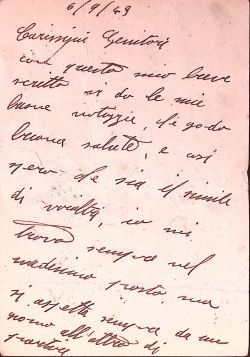 6/9/43
Carissimi Genitori
con questo mio breve
scritto vi do le mie
buone notizzie, di godo
buona salute, e così
spero che sia il simile
di voialtri, io mi
trovo sempre nel
medesimo posto ma
si aspetta sempre da un
giorno all'altro di
partire